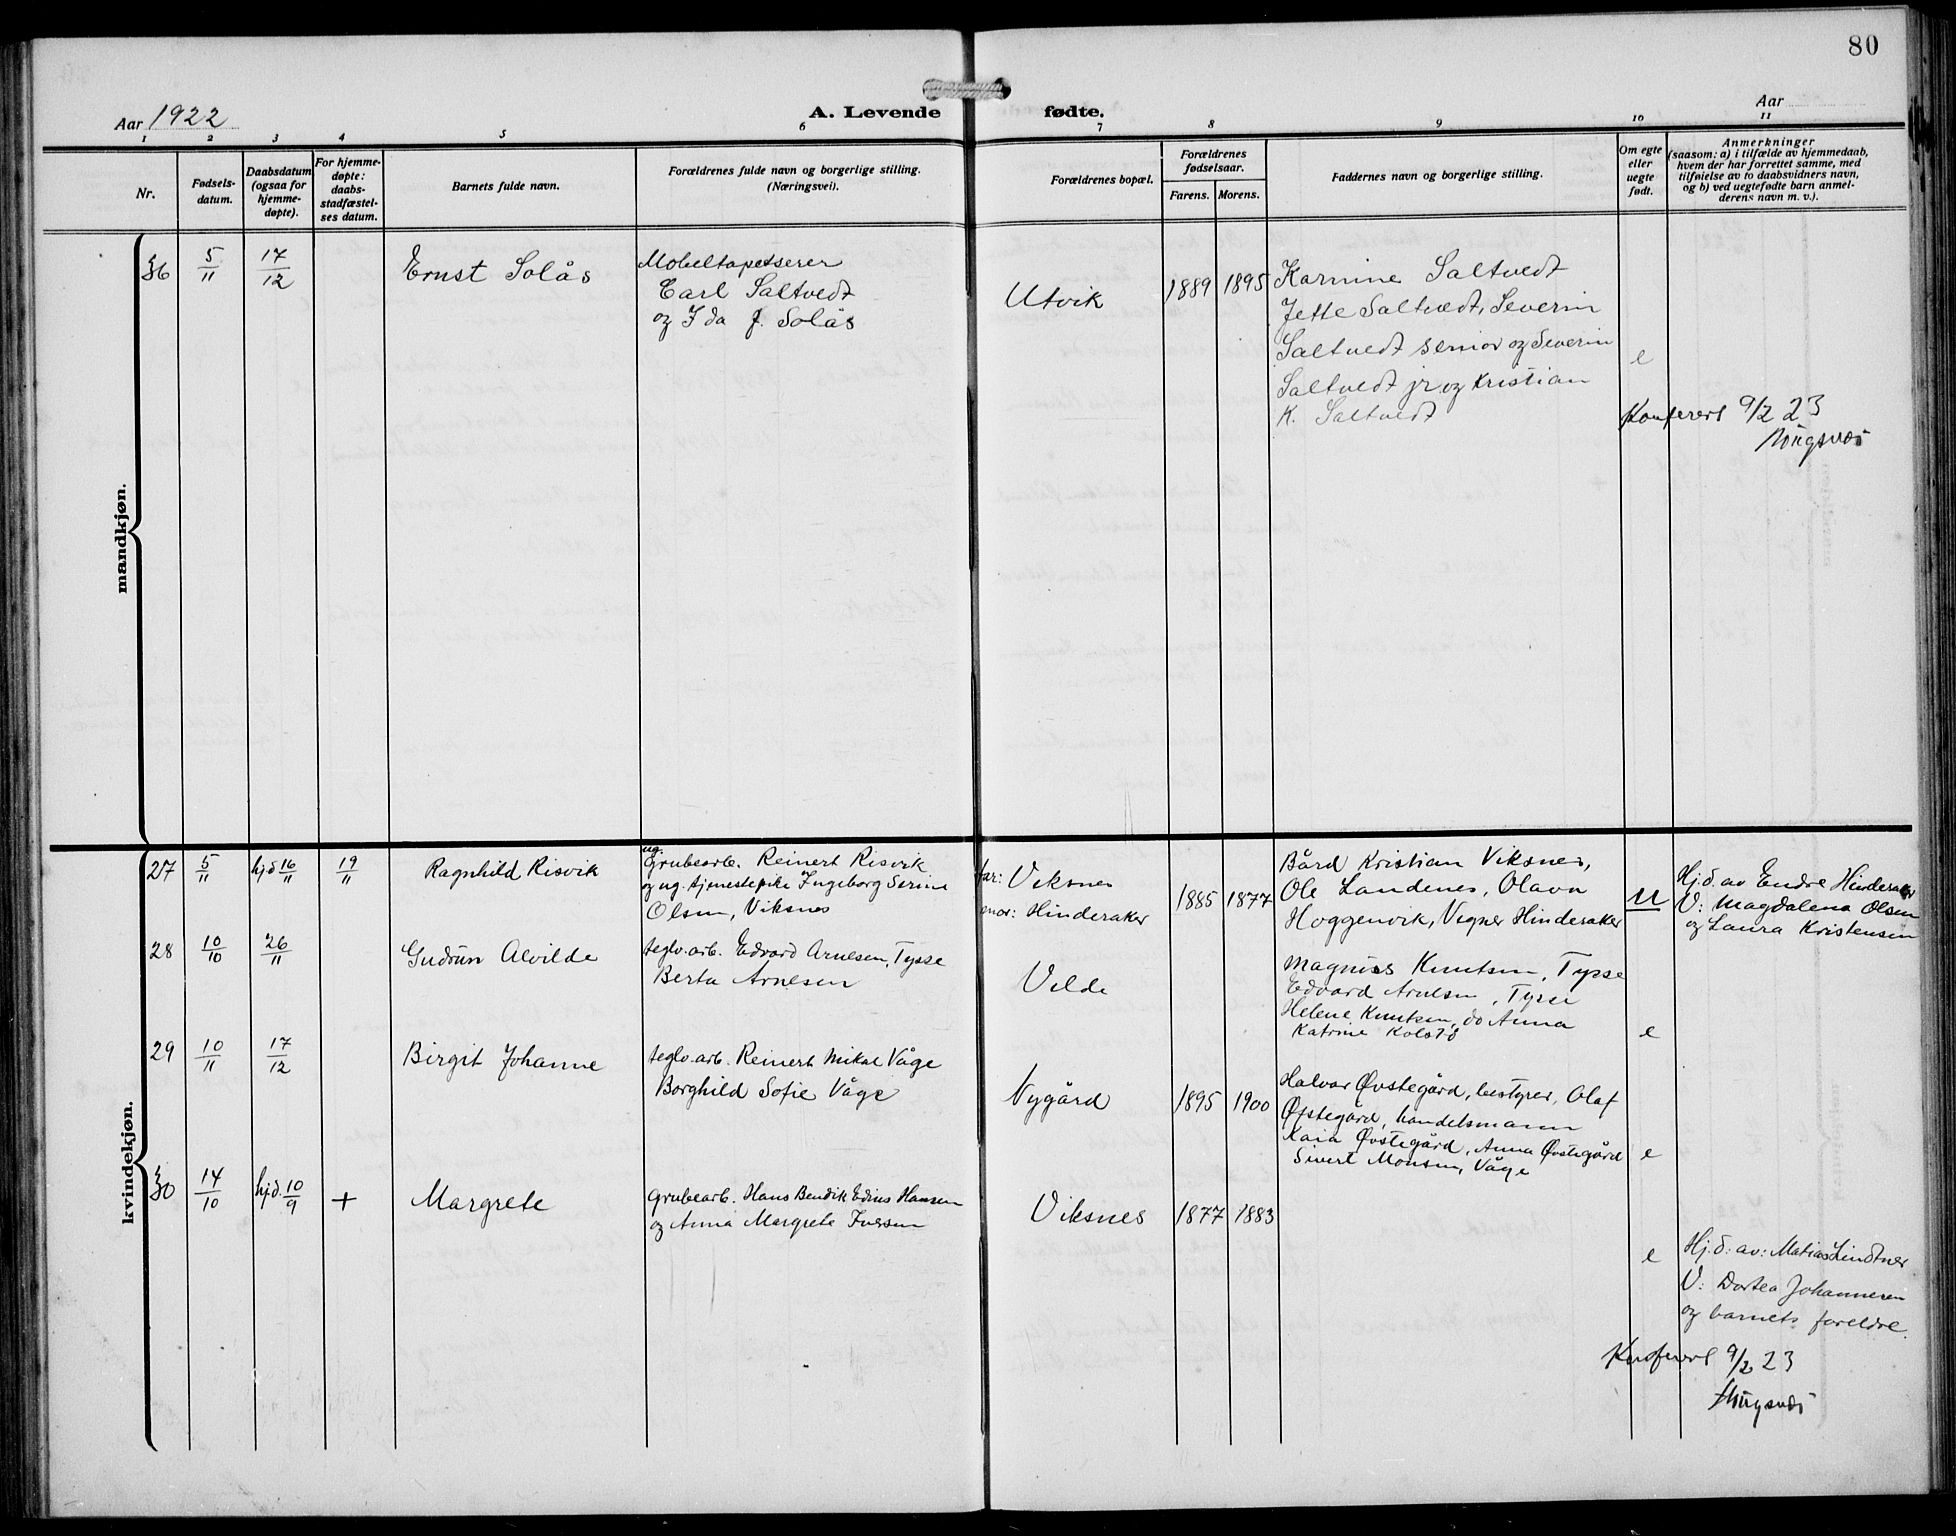 80
Aar 1922
A. Levende
fødte.
Aar
1 2 3 4 5 6 7 8 9 10 11
Nr.
Fødsels-
datum.
Daabsdatum
(ogsaa for
hjemme-
døpte).
For hjemme-
døpte:
daabs-
stadfæstel-
ses datum.
Barnets fulde navn.
Forældrenes fulde navn og borgerlige stilling.
(Næringsvei).
Forældrenes bopæl.
Forældrenes
fødselsaar.
Farens. Morens.
Faddernes navn og borgerlige stilling.
Om egte
eller
uegte
født.
Anmerkninger
(saasom: a) i tilfælde av hjemmedaab,
hvem der har forrettet samme, med
tilføielse av to daabsvidners navn,
og b) ved uegtefødte barn anmel-
derens navn m. v.).
mandkjøn.
36 5/11 17/12
Ernst Solås
Mobeltapetserer
Carl Saltvedt
og Ida J. Solås
Utvik
1889 1895
Karnine Saltvedt
Jette Saltvedt, Severin
Saltvedt senior og Severin
Saltvedt jr. og Kristian
K. Saltvedt
e
Konferert 9/2 23
kvindekjøn.
27 5/11 hjd 16/11 19/11
Ragnhild Risvik
ug.
Grubearb. Reinert Risvik
og ug. tjenestepike Ingeborg Serine
Olsen, Viksnes
far: Viksnes
mor: Hinderaker
1885 1877
Bård Kristian Viksnes,
Ole Landenes, Olava
Hoggenvik, Vigner Hinderaker
U
Hj. d. av Endre Hinderaker
V: Magdalena Olsen
og Laura Kristensen
28 10/10 26/11
Gudrun Alvilde
teglv. arb. Edvard Arnesen, Tysse
Berta Arnesen
Velde
Magnus Knutsen, Tysse
Edvard Arnesen, Tysse
Helene Knutsen, do Anna
Katrine Kolstø
e
29 10/11 17/12
Birgit Johanne
teglv. arb. Reinert Mikal Våge
Borghild Sofie Våge
Nygård
1895 1900
Halvor Øvstegård, bestyrer, Olaf
Øvstegård, handelsmann
Kaia Øvstegård, Anna Øvstegård
Sivert Monsen, Våge
e
30 14/10 hjd. 10/9 +
Margrete
Grubearb. Hans Bendik Edins Hansen
og Anna Margrete Iversen
Viksnes
1877 1883
e
Hj. d: av: Matias Lindtner
V: Dortea Johannesen
og barnets foreldre.
Konferert 9/2 23